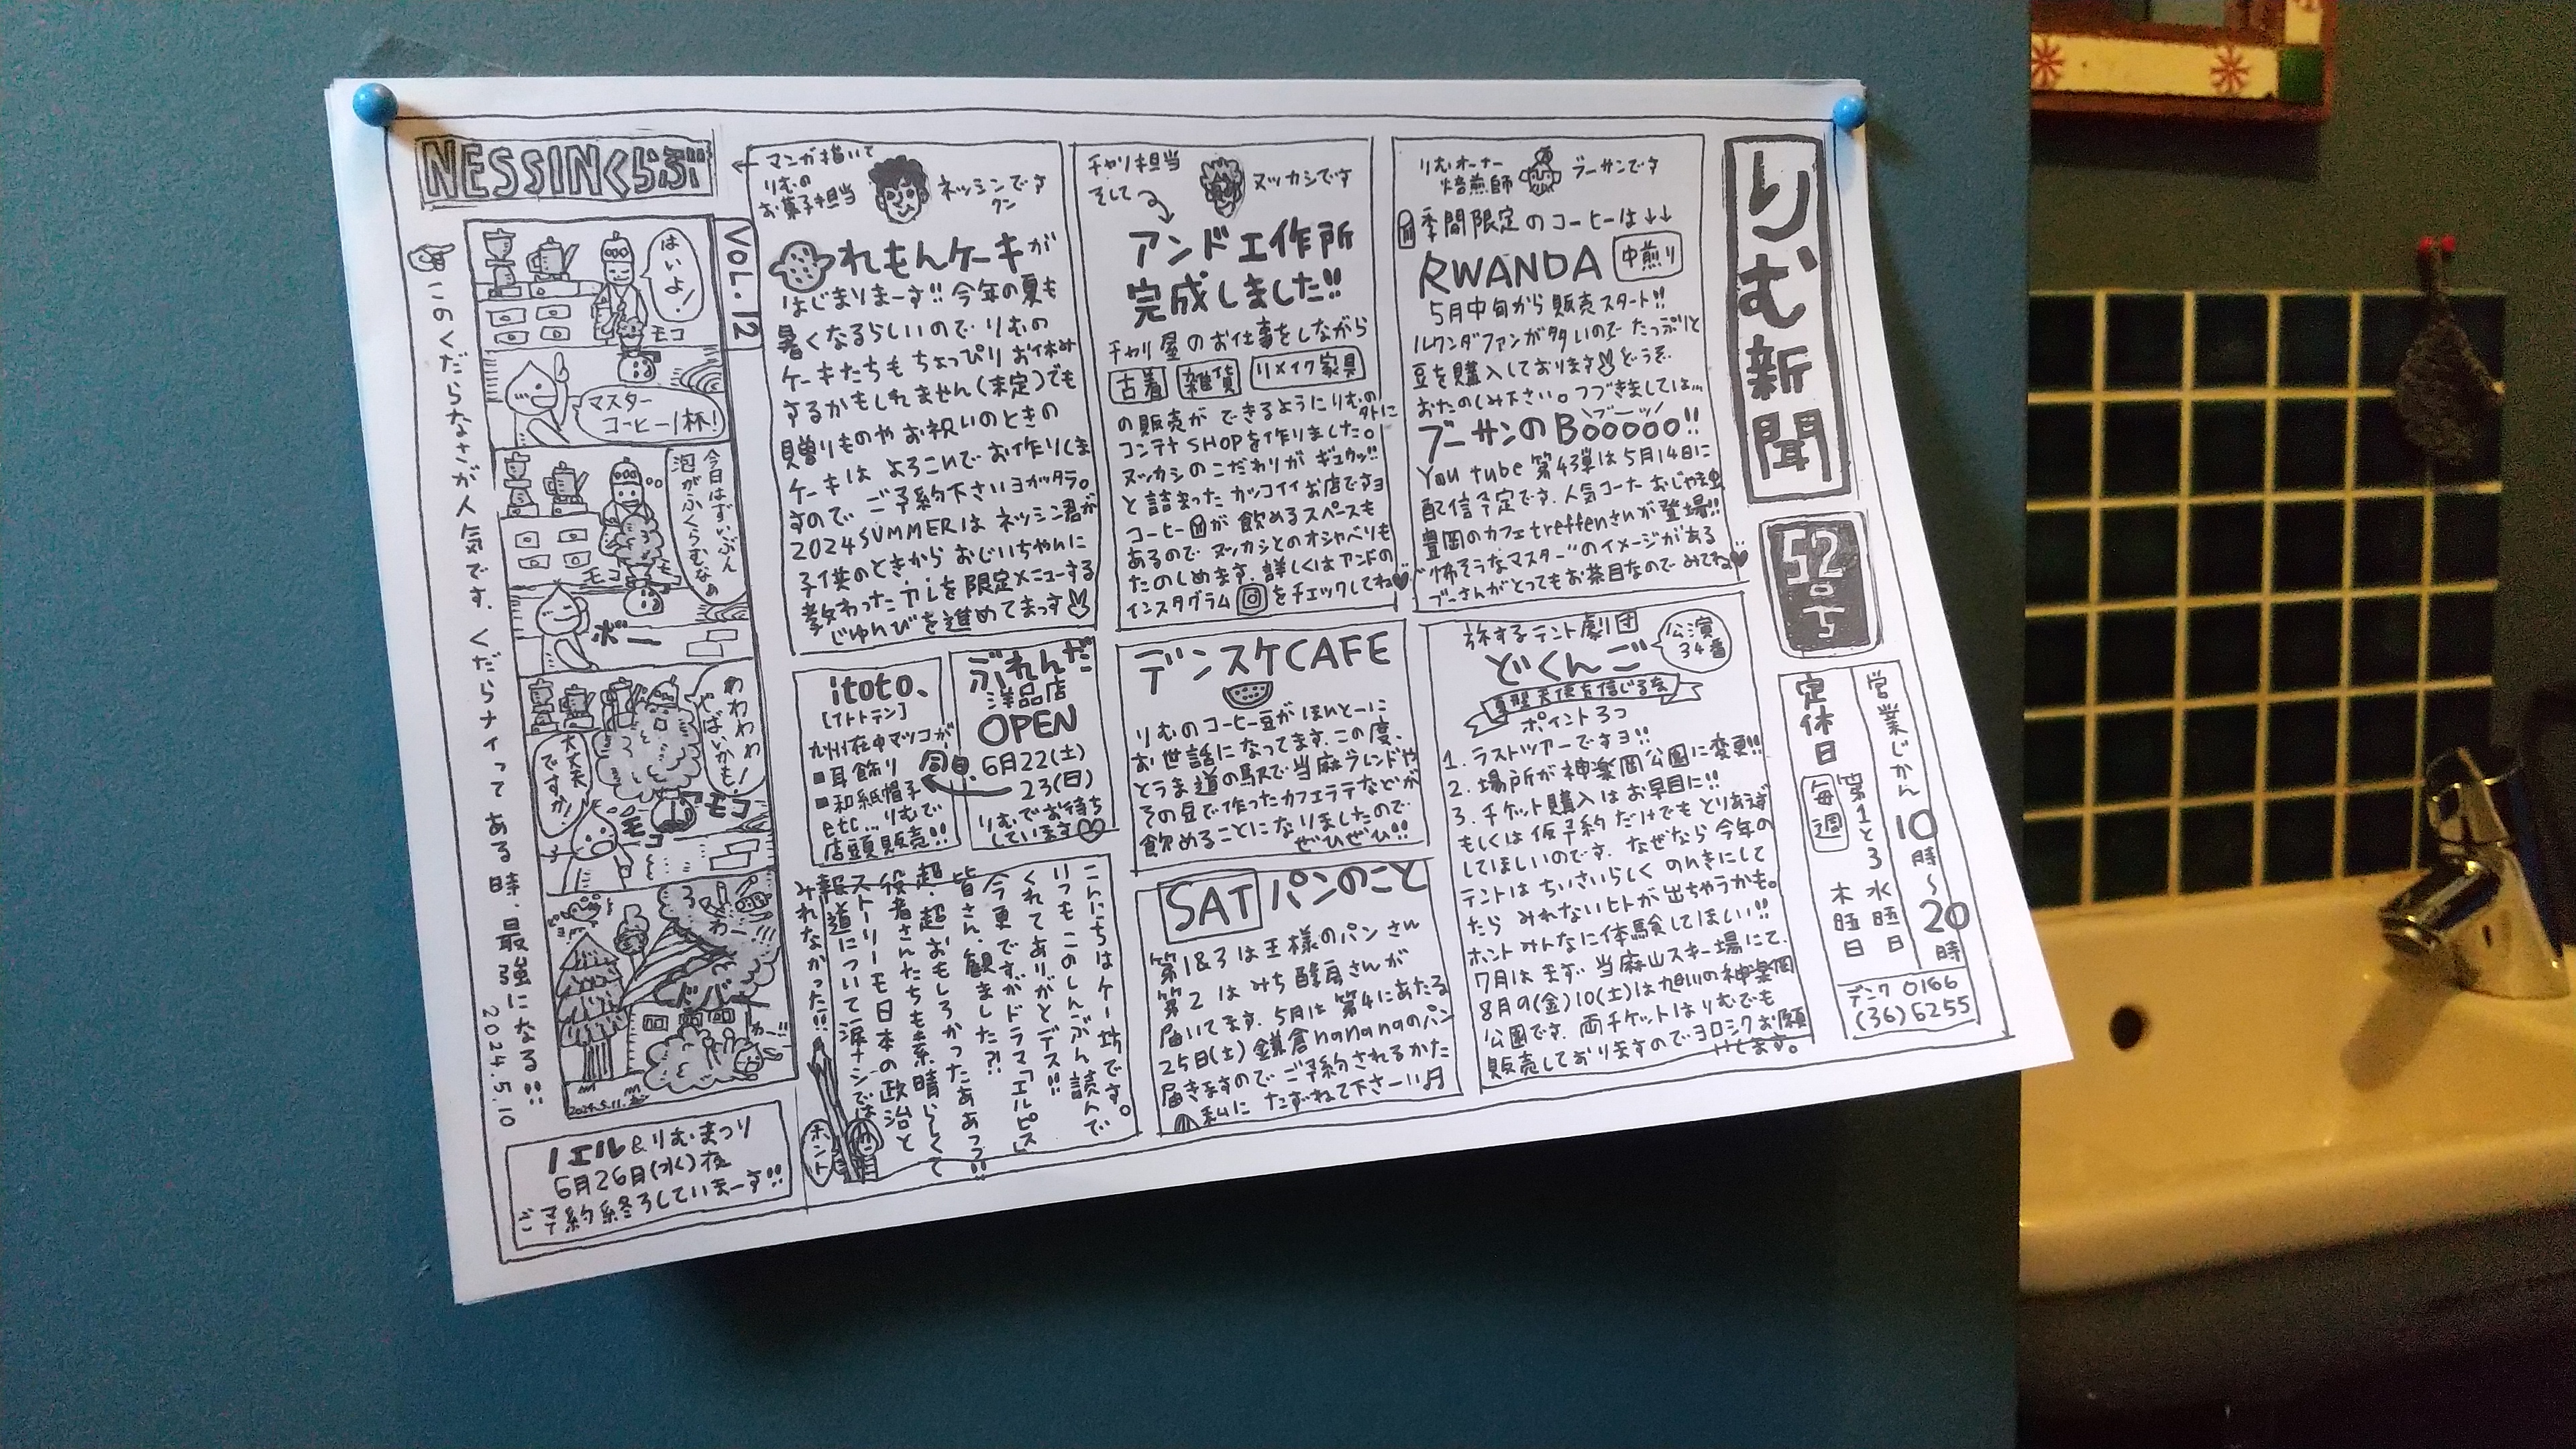 りむ新聞
52号
営業じかん 10時〜20時
定休日 毎週
第1と3水曜日
木曜日
デンワ 0166
(36)6255
りむオーナー
焙煎師
ブーサンです
季間限定のコーヒーは↓↓
RWANDA 中煎り
5月中旬から販売スタート!!
ルワンダファンが多いので たっぷりと
豆を購入しております どうぞ
おたのしみ下さい。つづきましては...
ブーッ
ブーサンのBooooo!!
You tube 第43弾は5月14日に
配信予定です。人気コーナー おじゃま虫
豊岡のカフェtreffenさんが登場!!
"怖そうなマスター"のイメージがある
ブーさんがとってもお茶目なので みてね♥
チャリ担当
そして
ヌッカシです
アンド工作所
完成しました!!
チャリ屋のお仕事をしながら
古着 雑貨 リメイク家具
の販売が できるように りむの
外に
コンテナSHOPを作りました。
ヌッカシのこだわりが ギュウッ!!
と詰まった カッコイイお店ですヨ
コーヒーが 飲めるスペースも
あるので ヌッカシとのオシャベリも
たのしめます。詳しくはアンドの
インスタグラム をチェックしてね♥
←マンガ描いて
りむの
お菓子担当
ネッシンです
クン
れもんケーキが
はじまりまーす!! 今年の夏も
暑くなるらしいので りむの
ケーキたちも ちょっぴり お休み
するかもしれません(未定)でも
贈りものや お祝いのときの
ケーキは よろこんで お作りしま
すので ご予約下さいヨガッタラ。
2024SUMMERは ネッシン君が
子供のときから おじいちゃんに
教わった アレを 限定メニューする
じゅんびを 進めてまっす
旅するテント劇団
どくんご
公演
34番
ポイント3つ
1. ラストツアーですヨ!!
2. 場所が神楽岡公園に変更!!
3. チケット購入はお早目に!!
もしくは 仮予約だけでも とりあえず
してほしいのです。なぜなら 今年の
テントは ちいさいらしく のんきにして
たら みれないヒトが 出ちゃうかも。
ホント みんなに体験してほしい!!
7月は まず 当麻山スキー場にて。
8月9(金)10(土)は旭川の神楽岡
公園です。両チケットは りむでも
販売しておりますのでヨロシクお願
いします。
デンスケCAFE
りむのコーヒー豆が ほんとーに
お世話になってます。この度、
とうま道の駅で 当麻ブレンドや
その豆で作ったカフェラテなどが
飲めることになりましたので
ぜひぜひ!!
SAT パンのこと
第1&3は王様のパンさん
第2 は みち酵房さんが
届いてます。5月は 第4にあたる
25日(土)鎌倉nananaのパン
届きますので ご予約されるかた
私に たずねて下さーい♬
ぶれんだ
洋品店
OPEN
6月22(土)
23(日)
りむでお待ち
しています♡
itoto、
[イトトテン]
九州在中マツコが
同日
■耳飾り
■和紙帽子
etc...りむで
店頭販売!!
こんにちはケー坊です。
いつもこのしんぶん読んで
くれてありがとデス!!
今更ですがドラマ「エルピス」
皆さん、観ました?!
超、超おもしろかったああっ!!
役者さんたちも素晴らしくて
ストーリーモ日本の政治と
報道について涙ナシでは
みれなかった!!
ホント
NESSINくらぶ
VOL.12
はいよ!
モコ
マスター
コーヒー1杯!
今日はずいぶん
泡がふくらむなぁ
モコ
モコ
ボー
わわわわ!
やばいかも!
大丈夫
ですか!
モコ
モコ
わー
ドバー
2024.5.11
このくだらなさが人気です。くだらナイってある時、最強になる!!
2024.5.10
ノエル&りむまつり
6月26日(水)夜
ご予約終了していまーす!!